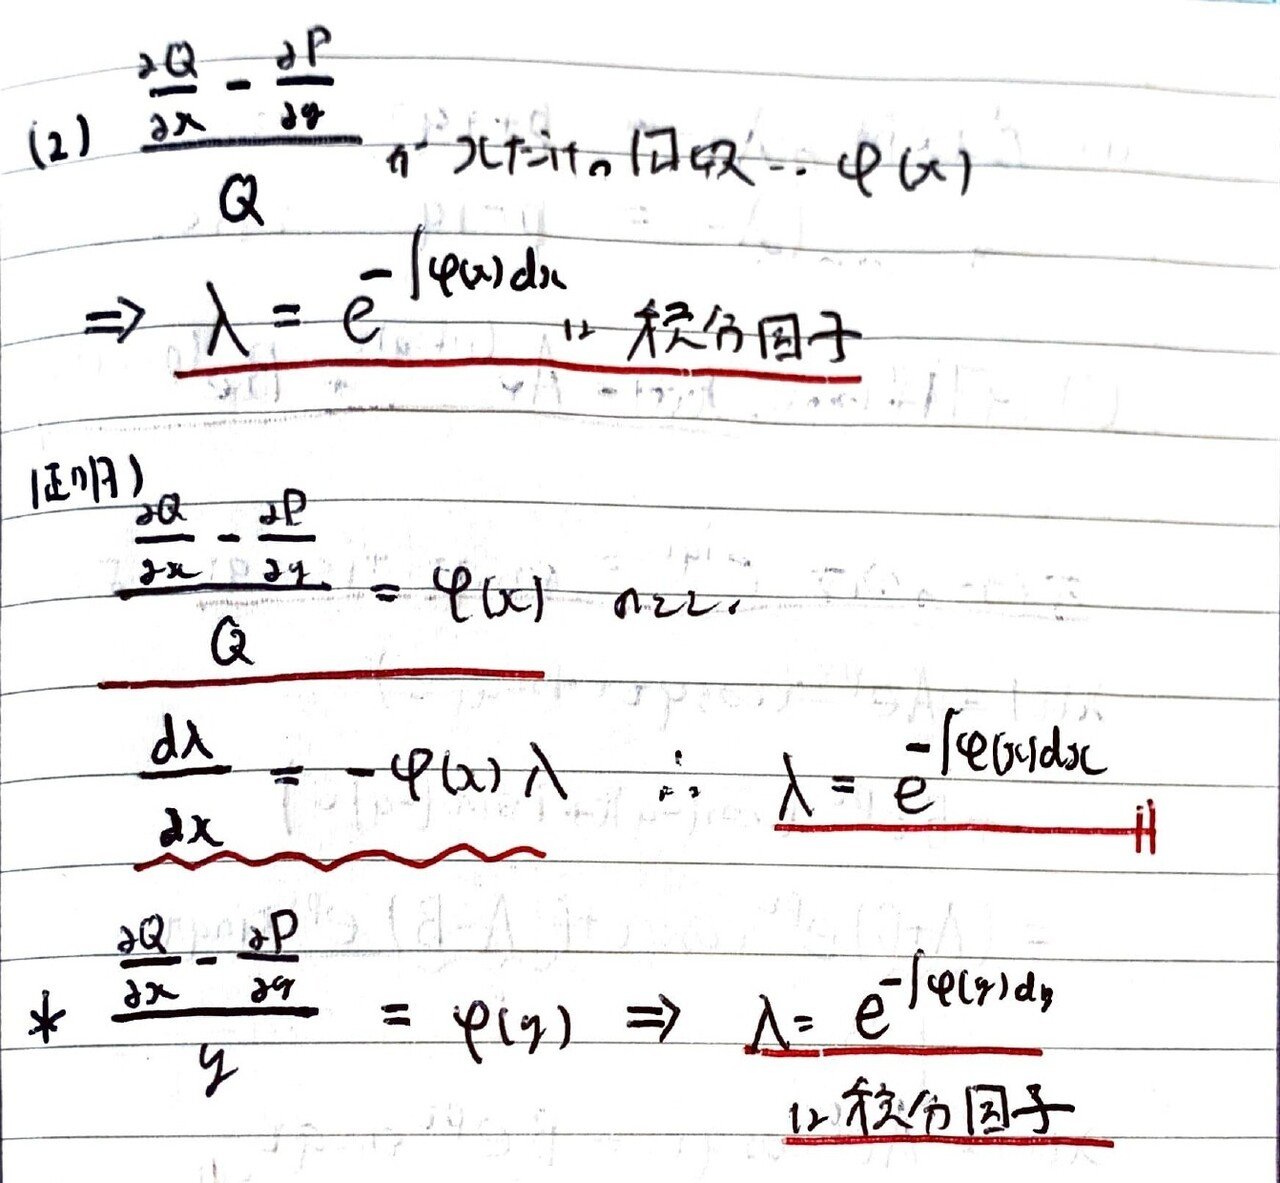 (2) (∂Q/∂x - ∂P/∂y)/Q が xだけの関数… φ(x)
⇒ λ = e^{-∫φ(x)dx} は 積分因子
証明)
(∂Q/∂x - ∂P/∂y)/Q = φ(x) のとき.
dλ/∂x = -φ(x)λ ∴ λ = e^{-∫φ(x)dx}
* (∂Q/∂x - ∂P/∂y)/y = φ(y) ⇒ λ = e^{-∫φ(y)dy}
は 積分因子